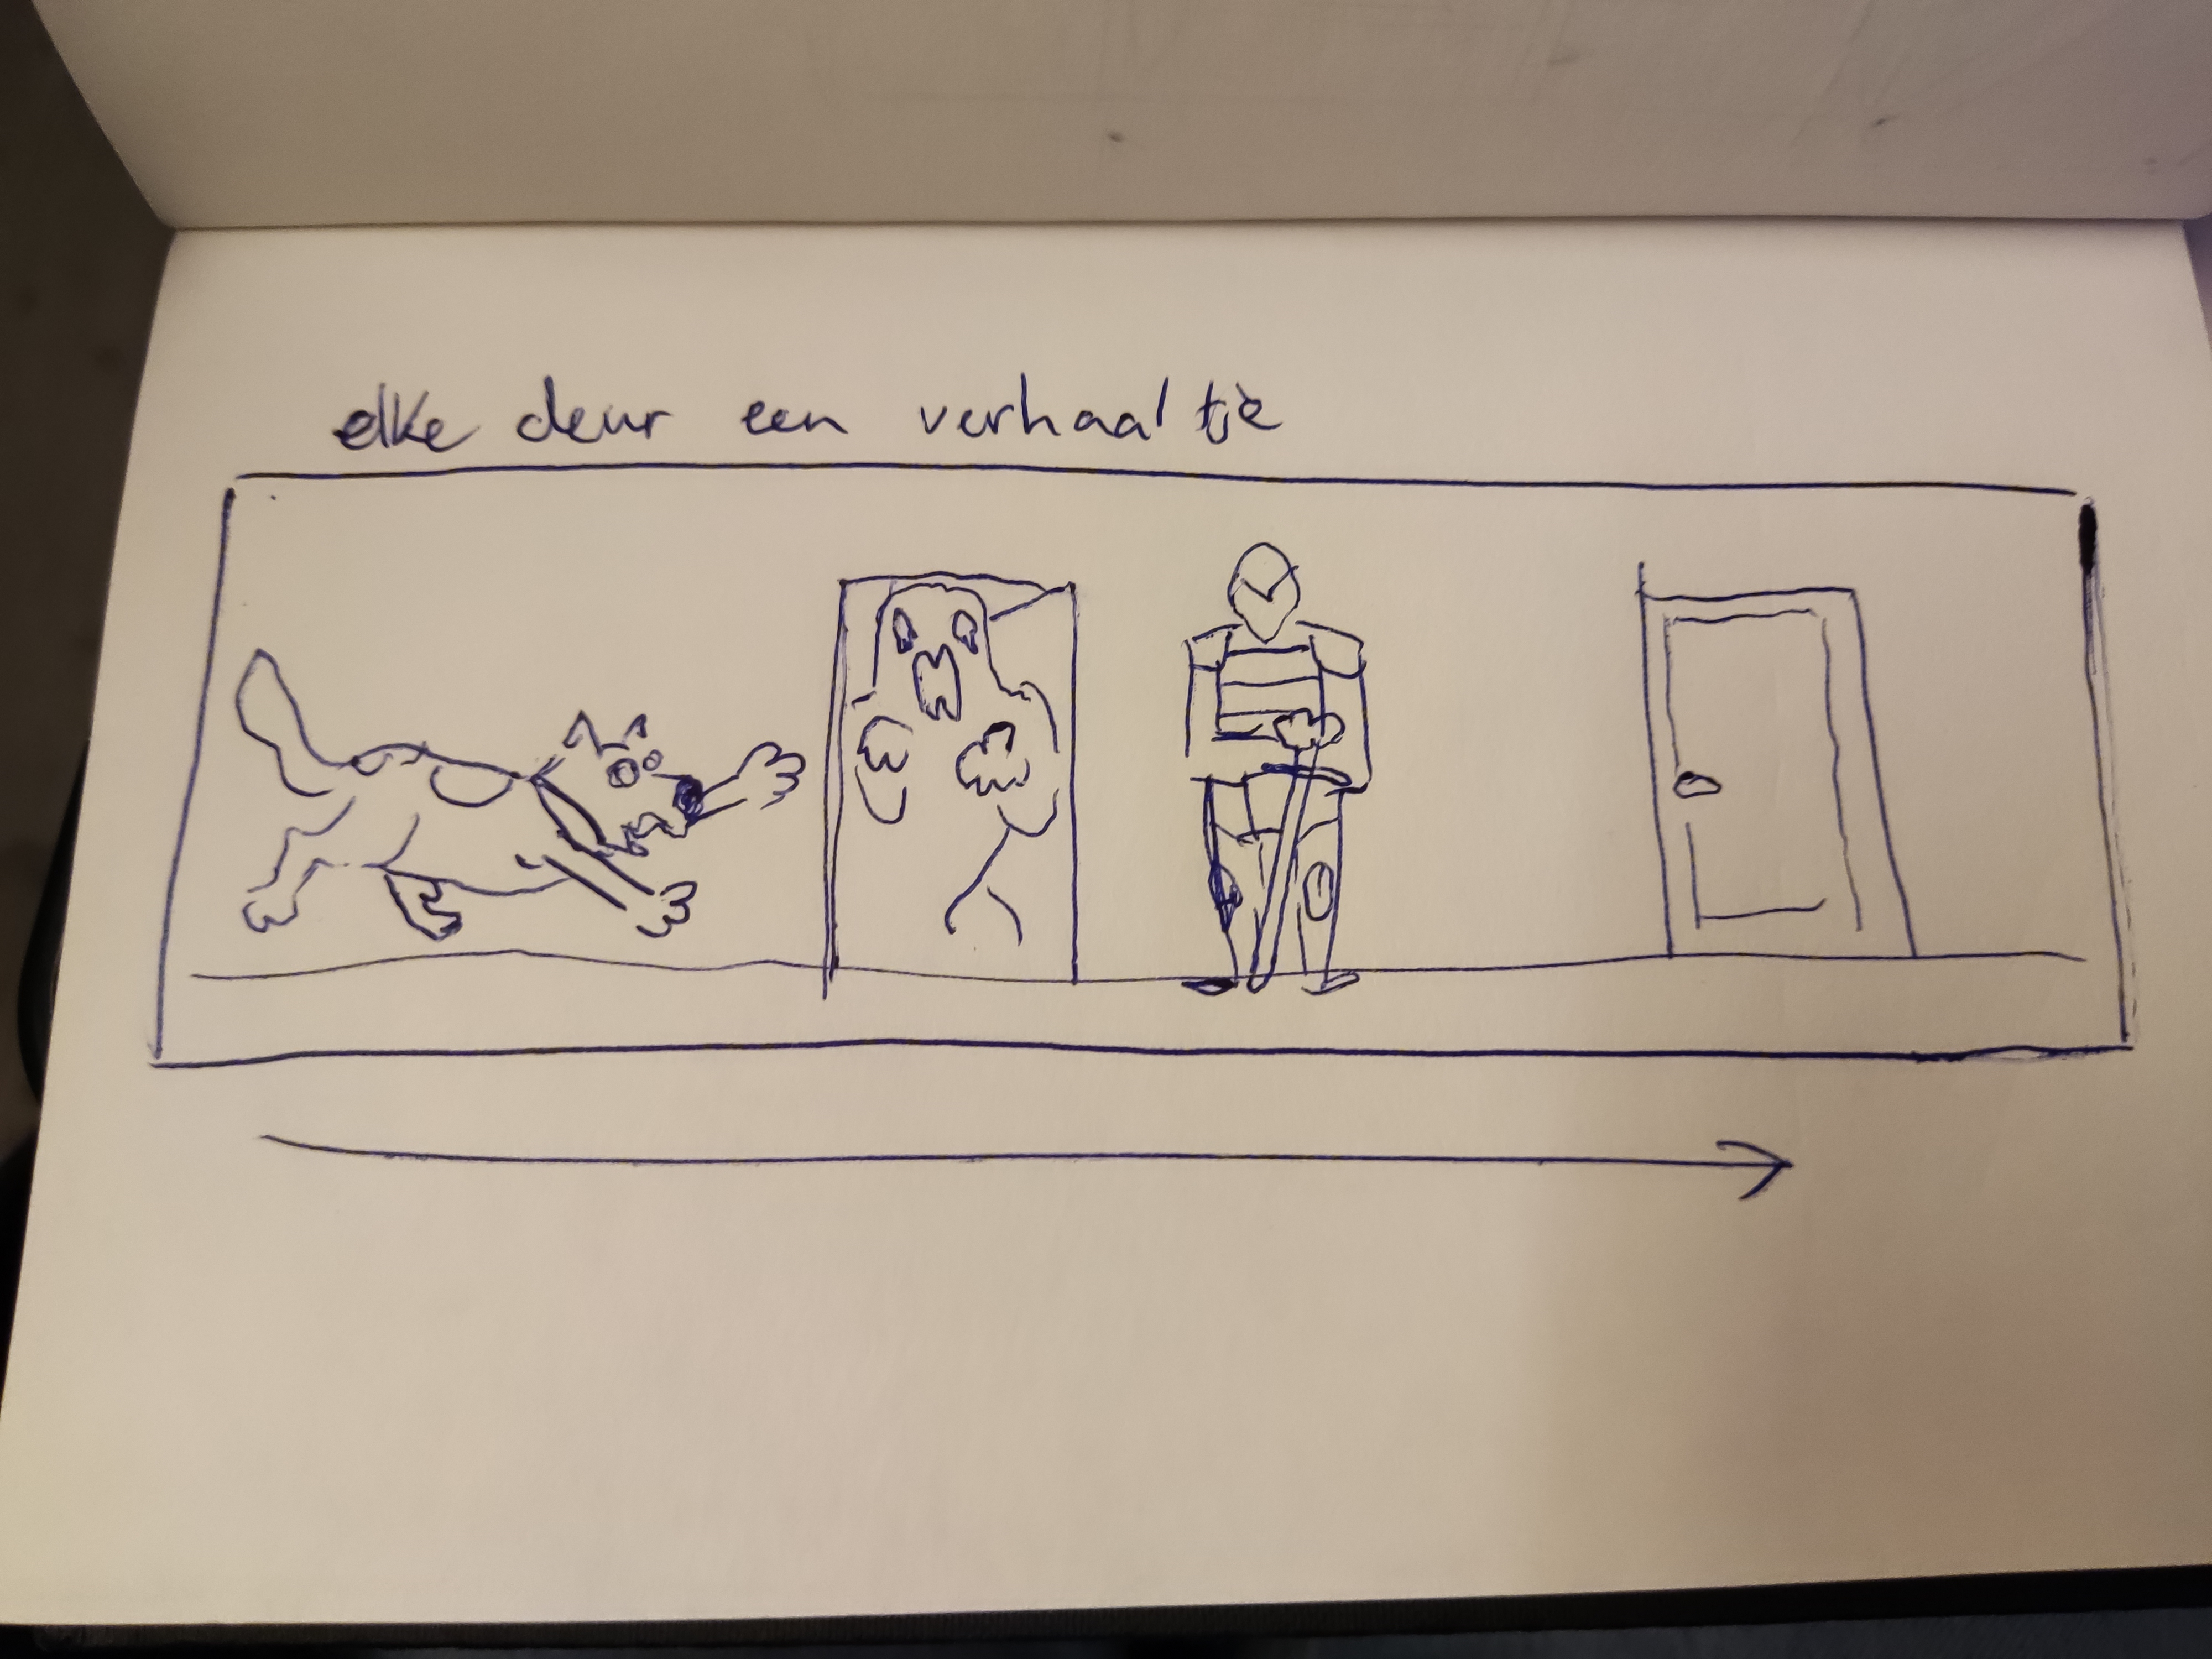 elke deur een verhaaltje